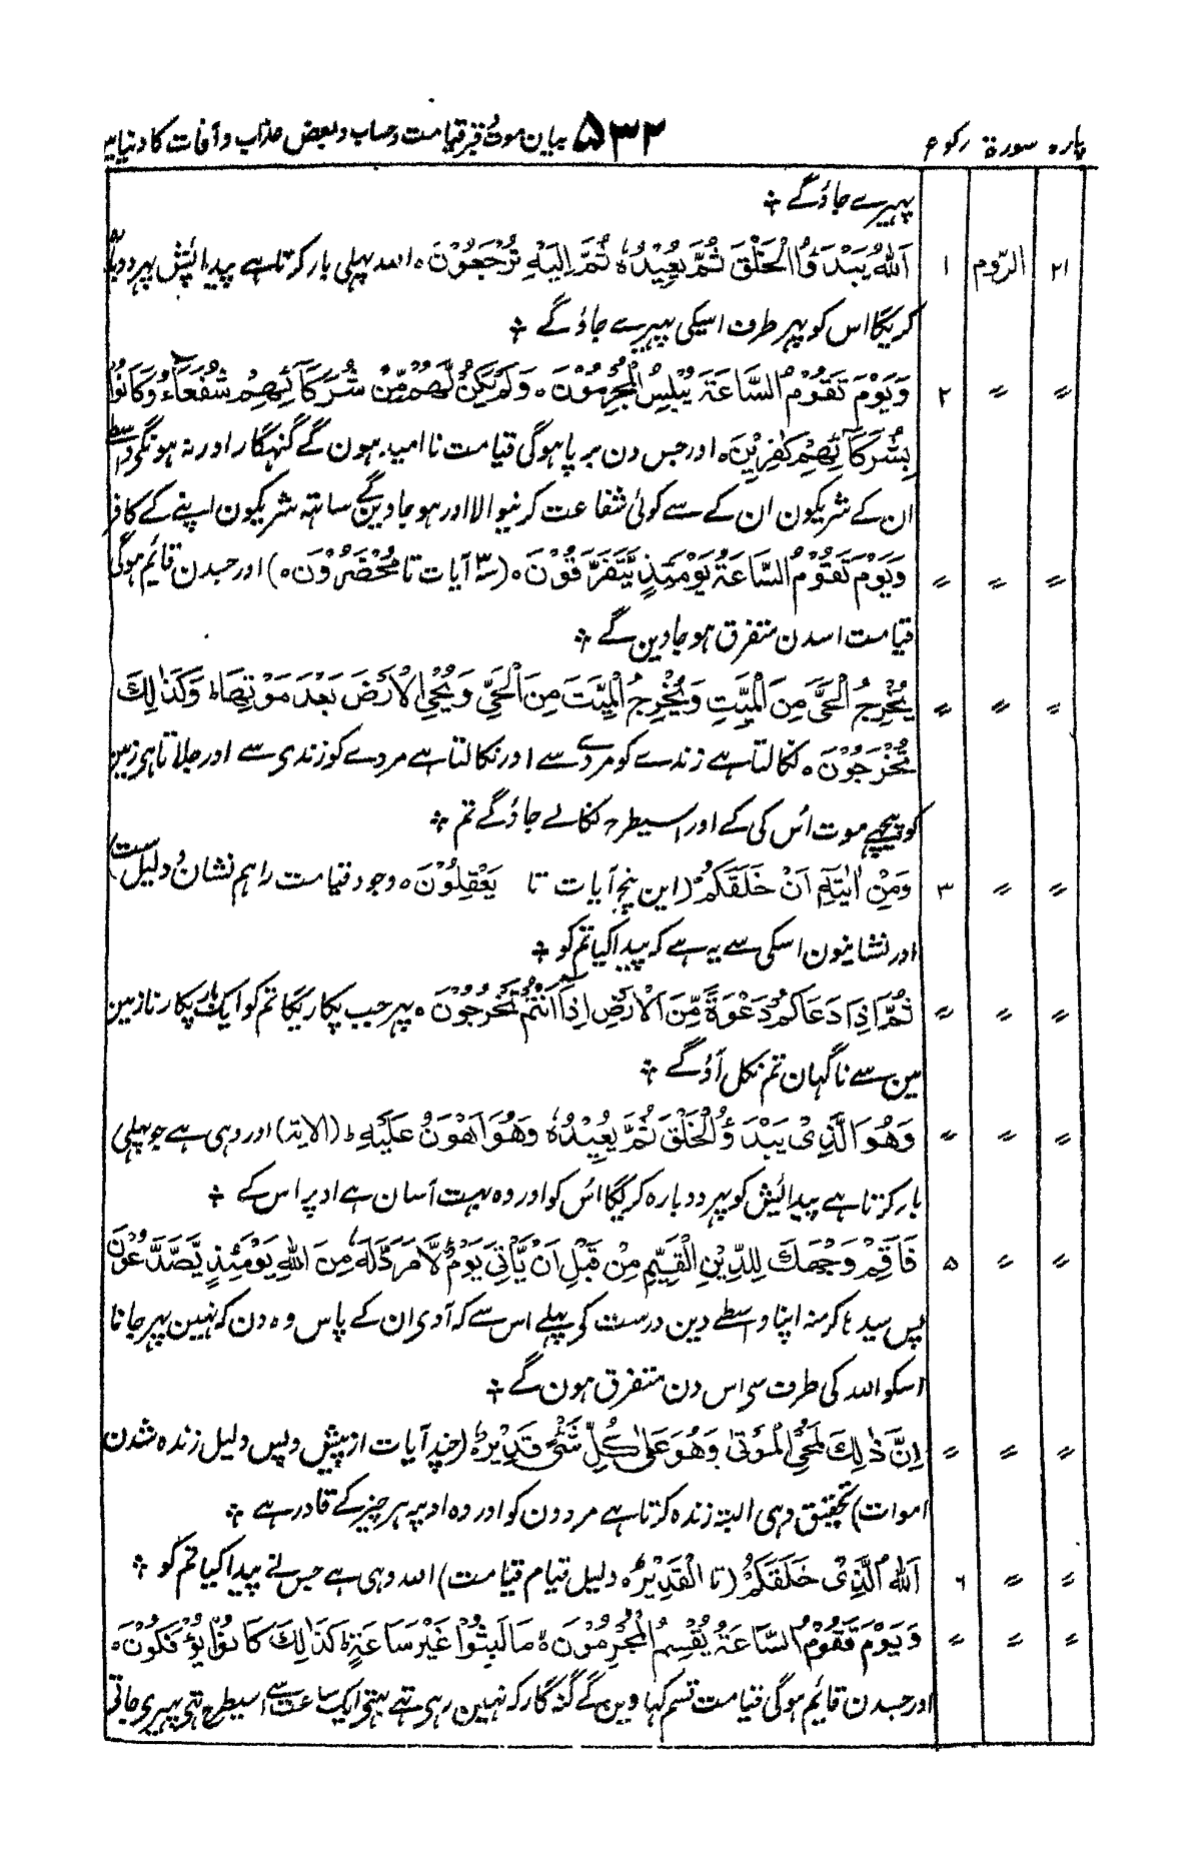 پارہ سورۃ رکوع ۵۳۲ بیان موت و قبر و قیامت و حساب و بعض عذاب و آفات کا دنیا میں
پہیرے جاؤگے ؞
۲۱ الرّوم ۱ اَللّٰهُ يَبْدَؤُا الْخَلْقَ ثُمَّ يُعِيْدُهٗ ثُمَّ اِلَيْهِ تُرْجَعُوْنَ ۰ اللہ پہلی بار کرتا ہے پیدایٔش پہر دوبارہ
کریگا اس کو پہر طرف اسیکی پہیرے جاؤگے ؞
〃 〃 ۲ وَيَوْمَ تَقُوْمُ السَّاعَةُ يُبْلِسُ الْمُجْرِمُوْنَ ۰ وَلَمْ يَكُنْ لَّهُمْ مِّنْ شُرَكَآئِهِمْ شُفَعَآءُ وَكَانُوْا
بِشُرَكَآئِهِمْ كٰفِرِيْنَ ۰ اور جس دن برپا ہوگی قیامت ناامید ہون گے گنہگار اور نہ ہونگے واسطے
ان کے شریکون ان کے سے کوئی شفاعت کرنیوالا اور ہو جاوینگے ساتہ شریکون اپنے کے کافر
〃 〃 〃 وَيَوْمَ تَقُوْمُ السَّاعَةُ يَوْمَئِذٍ يَّتَفَرَّقُوْنَ ۰ (۳ آیات تا مُحْضَرُوْنَ ۰) اور جسدن قایٔم ہوگی
قیامت اسدن متفرق ہو جاوین گے ؞
〃 〃 〃 يُخْرِجُ الْحَيَّ مِنَ الْمَيِّتِ وَيُخْرِجُ الْمَيِّتَ مِنَ الْحَيِّ وَيُحْيِ الْاَرْضَ بَعْدَ مَوْتِهَا ؕ وَكَذٰلِكَ
تُخْرَجُوْنَ ۰ نکالتا ہے زندے کو مردے سے اور نکالتا ہے مردے کو زندی سے اور جلاتا ہی زمین
کو پیچہے موت اُس کی کے اور اسیطرح نکالے جاؤگے تم ؞
〃 〃 ۳ وَمِنْ اٰيٰتِهٖ اَنْ خَلَقَكُمْ (این پنج آیات تا يَعْقِلُوْنَ ۰ وجود قیامت راہم نشان و دلیل است)
اور نشانیون اسکی سے یہ ہے کہ پیدا کیا تم کو ؞
〃 〃 〃 ثُمَّ اِذَا دَعَاكُمْ دَعْوَةً مِّنَ الْاَرْضِ اِذَآ اَنْتُمْ تَخْرُجُوْنَ ۰ پہر جب پکاریگا تم کو ایک بار پکارنا زمین
مین سے ناگہان تم نکل آؤگے ؞
〃 〃 〃 وَهُوَ الَّذِيْ يَبْدَؤُا الْخَلْقَ ثُمَّ يُعِيْدُهٗ وَهُوَ اَهْوَنُ عَلَيْهِ ؕ (الایۃ) اور وہی ہے جو پہلی
بار کرتا ہے پیدائیش کو پہر دوبارہ کریگا اُس کو اور وہ بہت آسان ہے اوپر اس کے ؞
〃 〃 ۵ فَاَقِمْ وَجْهَكَ لِلدِّيْنِ الْقَيِّمِ مِنْ قَبْلِ اَنْ يَّاْتِيَ يَوْمٌ لَّا مَرَدَّ لَهٗ مِنَ اللّٰهِ يَوْمَئِذٍ يَّصَّدَّعُوْنَ
پس سیدہا کر منہ اپنا واسطے دین درست کے پہلے اس سے کہ آوی ان کے پاس وہ دن کہ نہین پہر جانا
اسکو اللہ کی طرف سی اس دن متفرق ہون گے ؞
〃 〃 〃 اِنَّ ذٰلِكَ لَمُحْيِ الْمَوْتٰى وَهُوَ عَلٰى كُلِّ شَيْءٍ قَدِيْرٌ ۰ (چند آیات از پیش و پس دلیل زندہ شدن
اموات) تحقیق وہی البتہ زندہ کرتا ہے مردون کو اور وہ اوپر ہر چیز کے قادر ہے ؞
〃 〃 ۶ اَللّٰهُ الَّذِيْ خَلَقَكُمْ (تا الْقَدِيْرُ ۰ دلیل قیام قیامت) اللہ وہی ہے جس نے پیدا کیا تم کو ؞
〃 〃 〃 وَيَوْمَ تَقُوْمُ السَّاعَةُ يُقْسِمُ الْمُجْرِمُوْنَ ۰ مَا لَبِثُوْا غَيْرَ سَاعَةٍ ؕ كَذٰلِكَ كَانُوْا يُؤْفَكُوْنَ ۰
اور جسدن قایٔم ہوگی قیامت قسم کہاوین گے گنہگار کہ نہین رہی تہے ہم ایک ساعت سے اسیطرح تہی پہیری جاتی